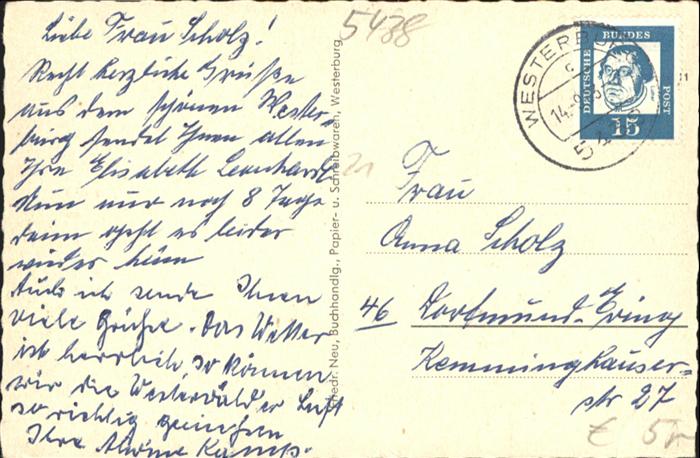 Liebe Frau Scholz!
Recht herzliche Grüße
aus dem schönen Wester-
burg sendet Ihnen allen
Ihre Elisabeth Leonhardt
Nun nur noch 8 Tage
dann geht es leider
wieder heim
Auch ich sende Ihnen
viele Grüße. Das Wetter
ist herrlich, so können
wir die Westerwälder Luft
so richtig genießen
Ihre Kamp.
5438
21
Friedr. Neu, Buchhandlg., Papier- u. Schreibwaren, Westerburg
WESTERBURG
c
14.
DEUTSCHE BUNDES POST
15
Frau
Anna Scholz
46 Dortmund-Eving
Kemminghauser-
str 27
€ 5,-